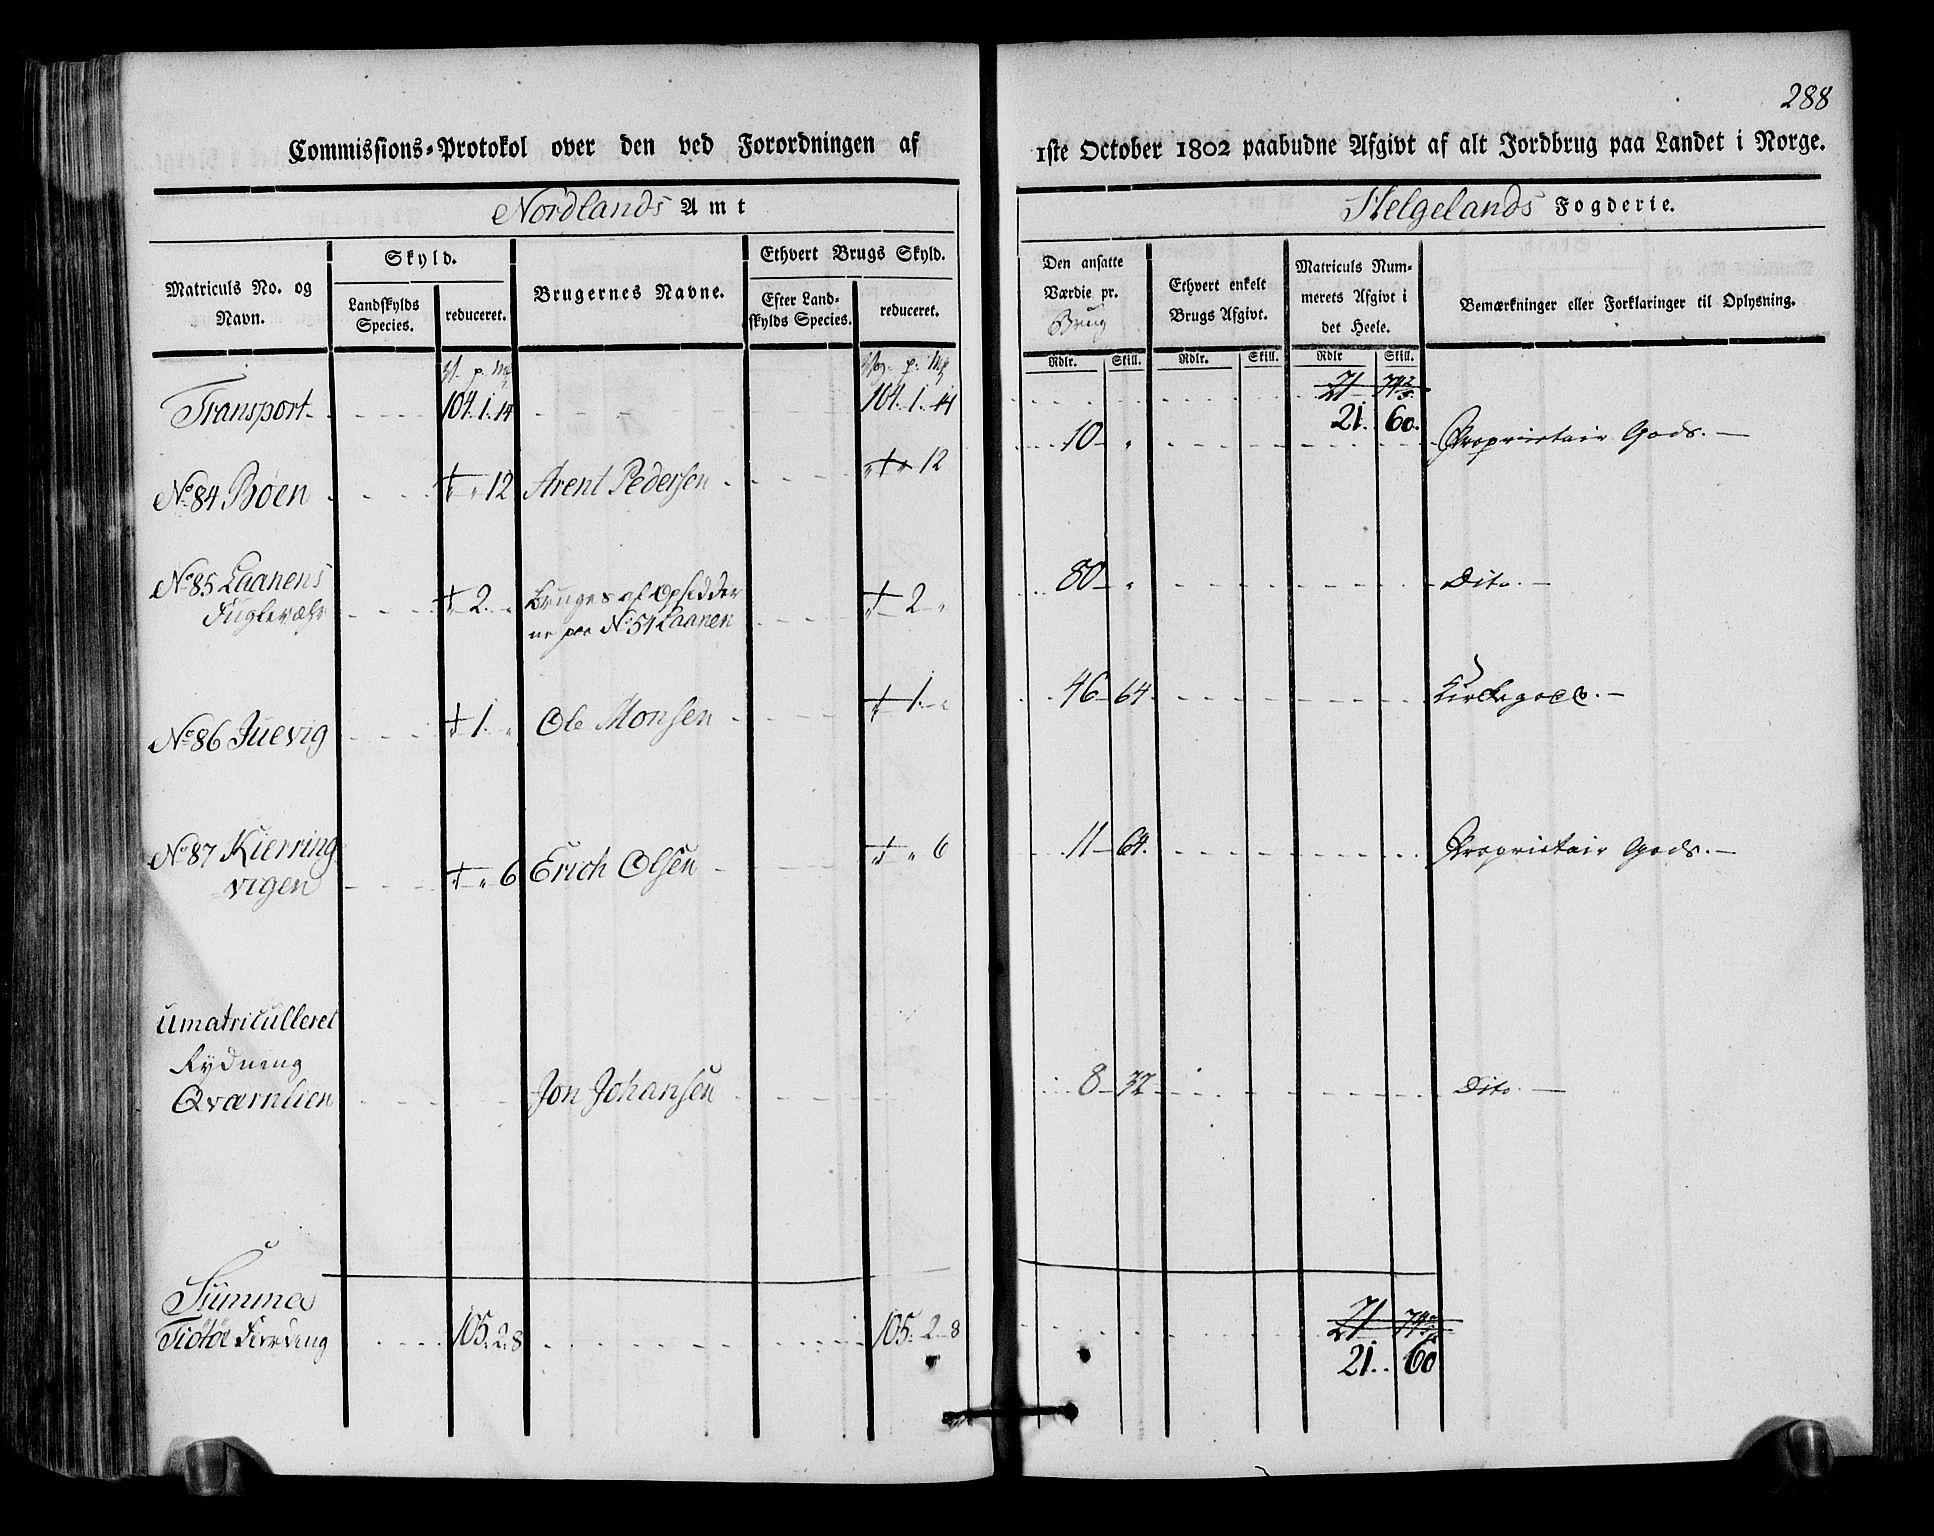 288
Commissions-Protokol over den ved Forordningen af 1ste October 1802 paabudne Afgivt af alt Jordbrug paa Landet i Norge.
Nordlands Amt
Helgelands Fogderie.
Matriculs No. og Navn.
Skyld.
Landskylds Species.
reduceret.
Brugernes Navne.
Ethvert Brugs Skyld.
Efter Landskylds Species.
reduceret.
Den ansatte Værdie pr. Brug
Ethvert enkelt Brugs Afgivt.
Matriculs Nummerets Afgivt i det Heele.
Bemærkninger eller Forklaringer til Oplysning.
Rdlr. Skill. Rdlr. Skill. Rdlr Skill.
Transport 104. 1. 14 104. 1. 14 21. 60.
No. 84 Böen 12 Arent Pedersen 12 10 „ Proprietair Gods.
No. 85 Laanens
Fuglevær 2. „ Bruges af Opsidder
ne paa No. 54 Laanen 2 „ 80 „ Dito.
No. 86 Juevig 1. „ Ole Monsen 1. „ 46 64 Kirkegods.
No. 87 Kierring
vigen „ 6 Erich Olsen „ 6 11 64. Proprietair Gods.
Umatriculleret
Rydning
Qværnlien Jon Johansen 8 32 Dito.
Summa
Tiötöe Fierding 105. 2. 8 105. 2 8 21. 60